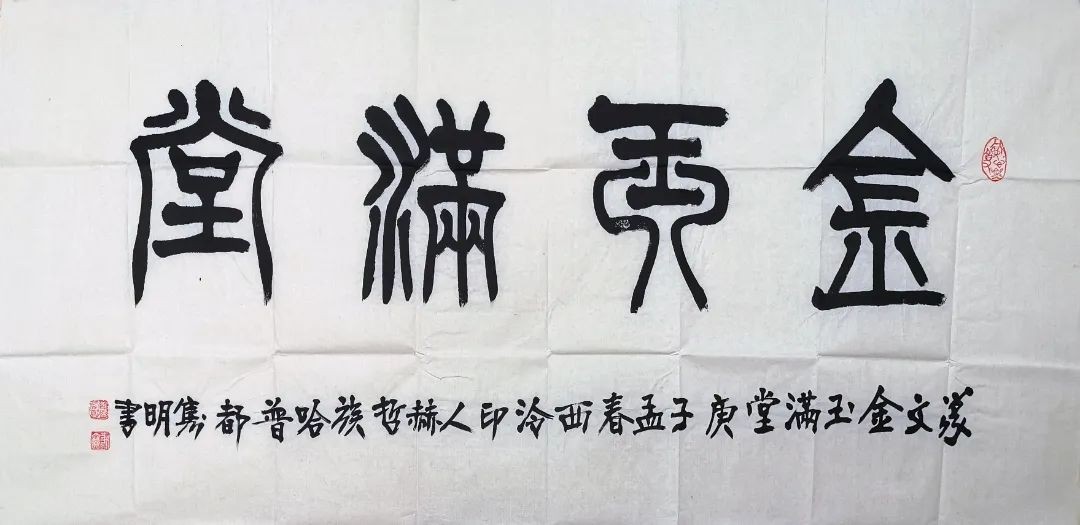 金玉滿堂
文金玉滿堂庚子孟春西泠印人赫哲族哈普都隽明書